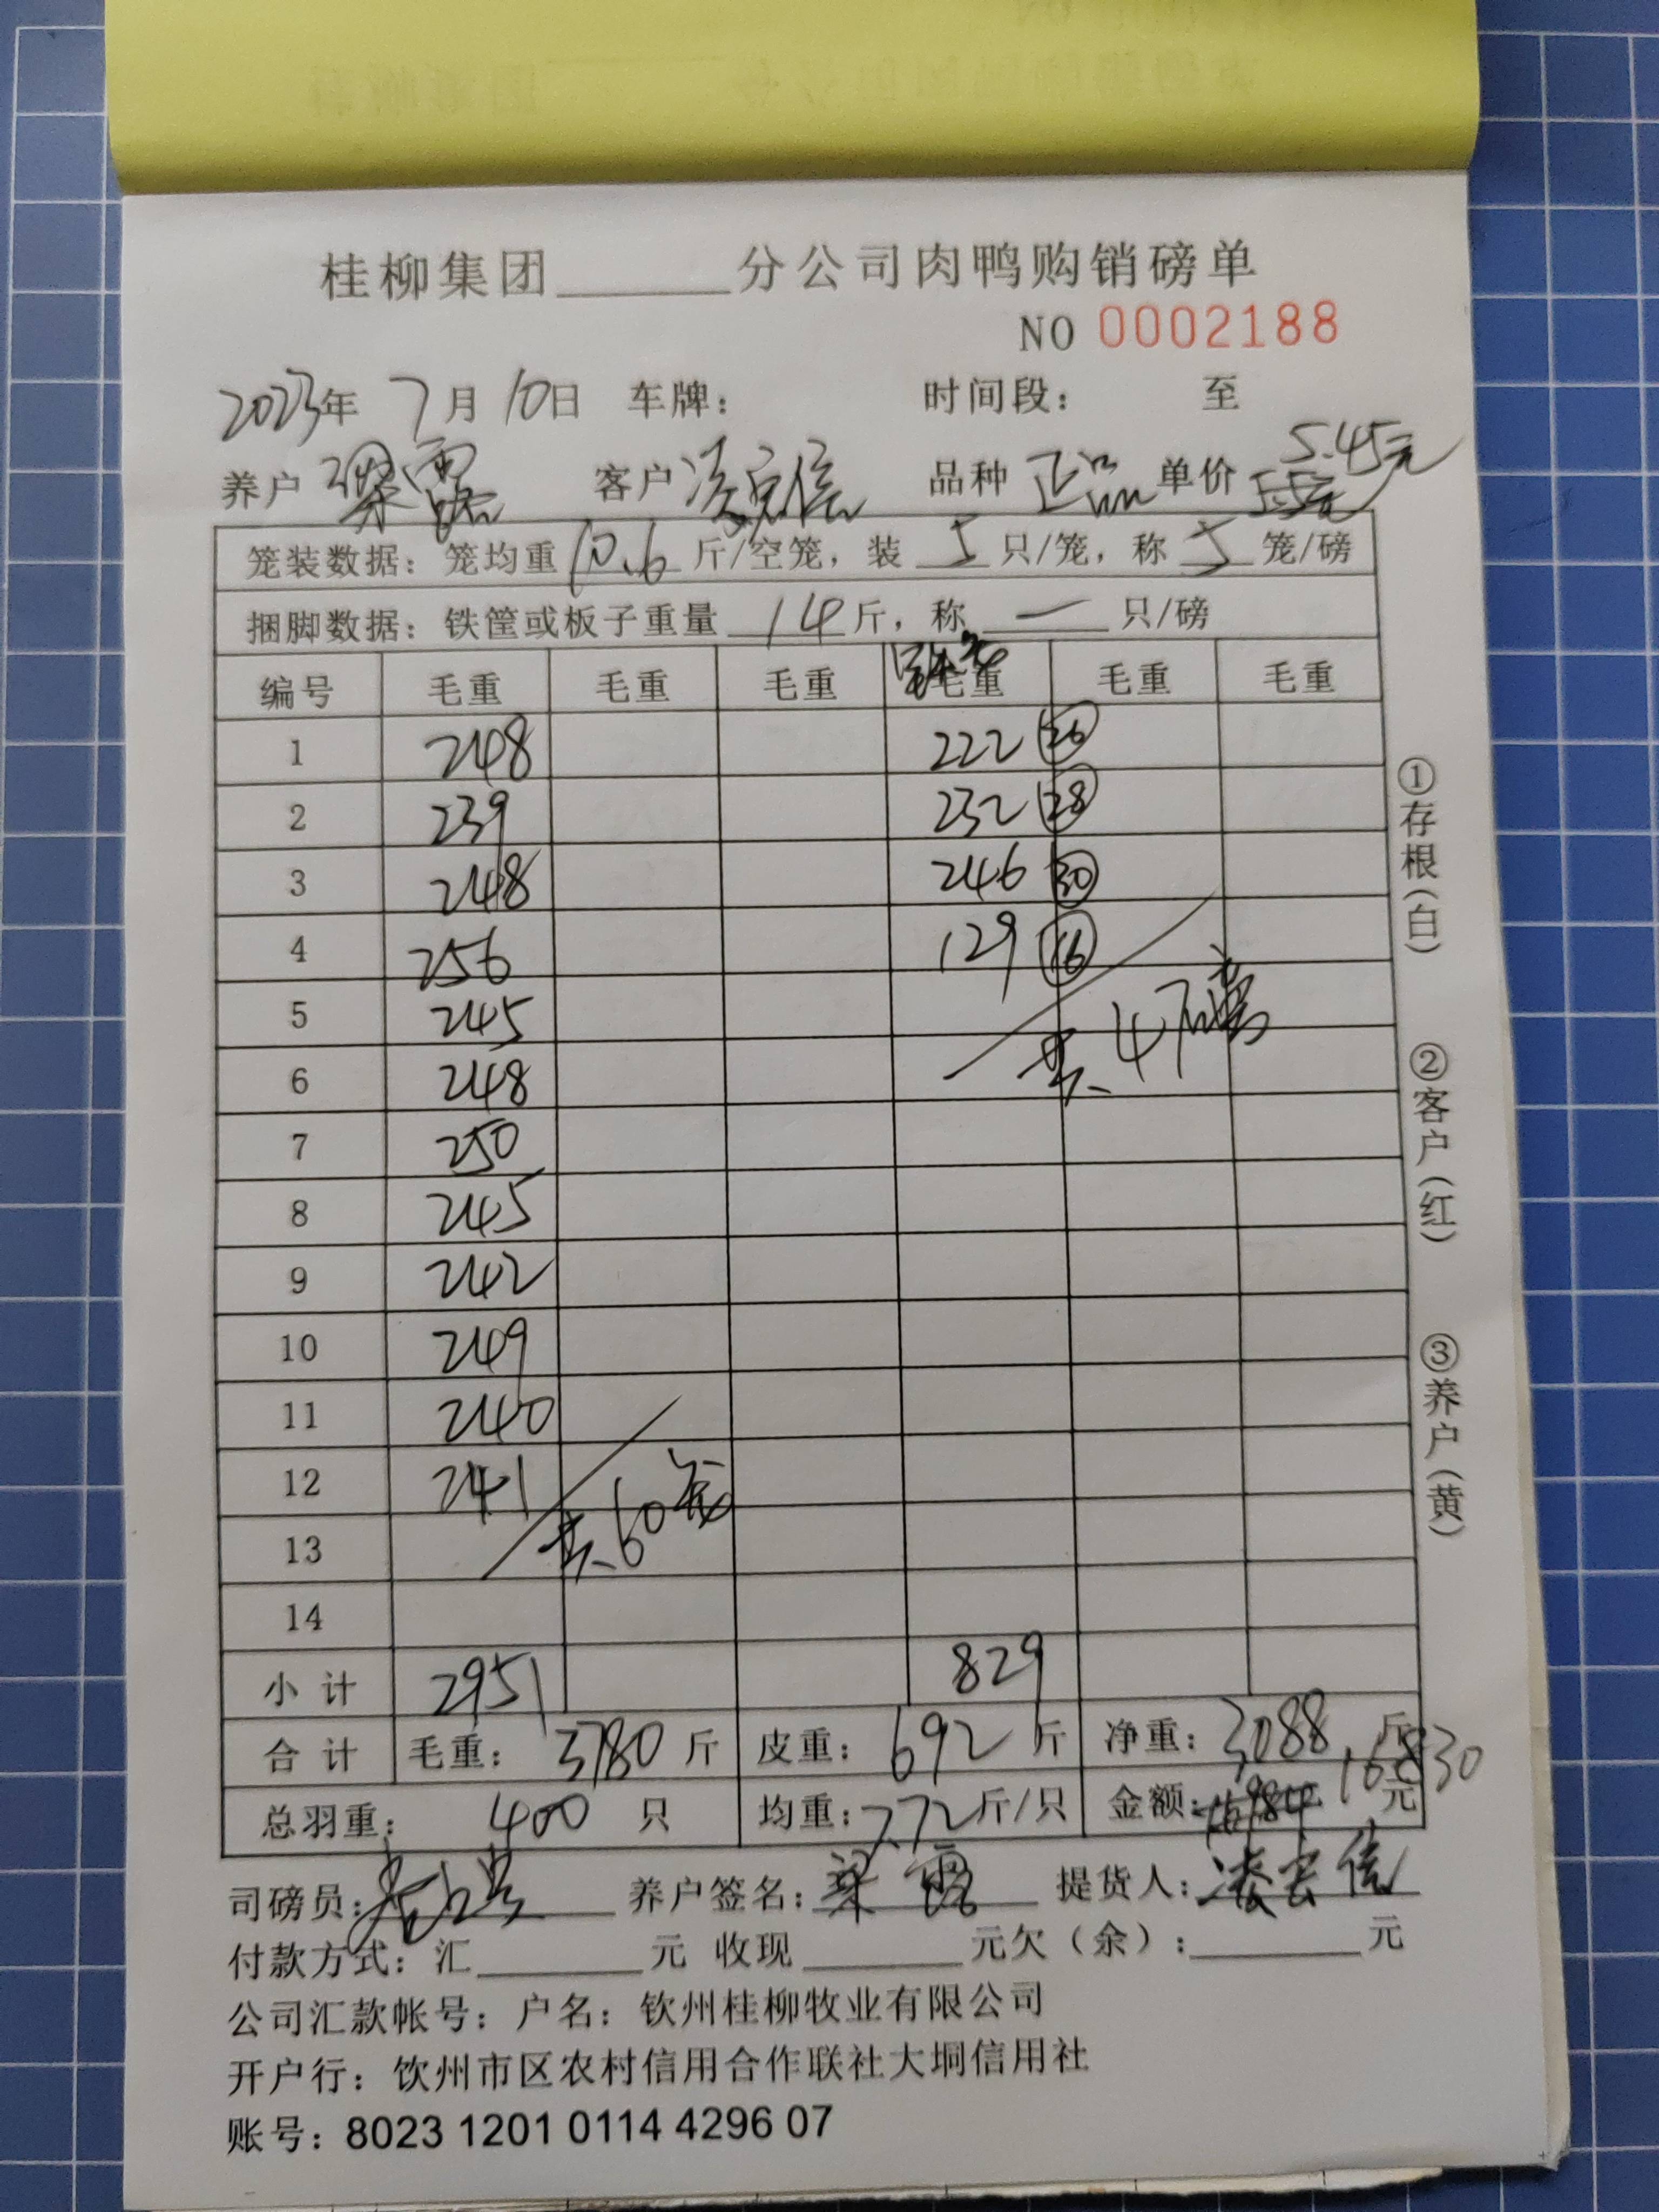 桂柳集团______分公司肉鸭购销磅单
NO 0002188
2023年 7月 10日 车牌： 时间段： 至
5.45元
养户 梁露 客户 凌宏信 品种 正品 单价
笼装数据：笼均重 10.6 斤/空笼，装 5 只/笼，称 5 笼/磅
捆脚数据：铁筐或板子重量 14 斤，称 一 只/磅
编号 毛重 毛重 毛重 毛重 毛重 毛重
1 248 222 26
2 239 232 28
3 248 246 30
4 256 129 16
5 245 共4磅
6 248
7 250
8 245
9 242
10 249
11 240
12 241 共60笼
13
14
小计 2951 829
合计 毛重： 3780 斤 皮重： 692 斤 净重： 3088 斤
总羽重： 400 只 均重：7.72 斤/只 金额： 16830 元
司磅员： 养户签名：梁露 提货人：凌宏信
付款方式：汇______元 收现______元欠（余）：______元
公司汇款帐号：户名：钦州桂柳牧业有限公司
开户行：钦州市区农村信用合作联社大垌信用社
账号：8023 1201 0114 4296 07
①存根(白) ②客户(红) ③养户(黄)